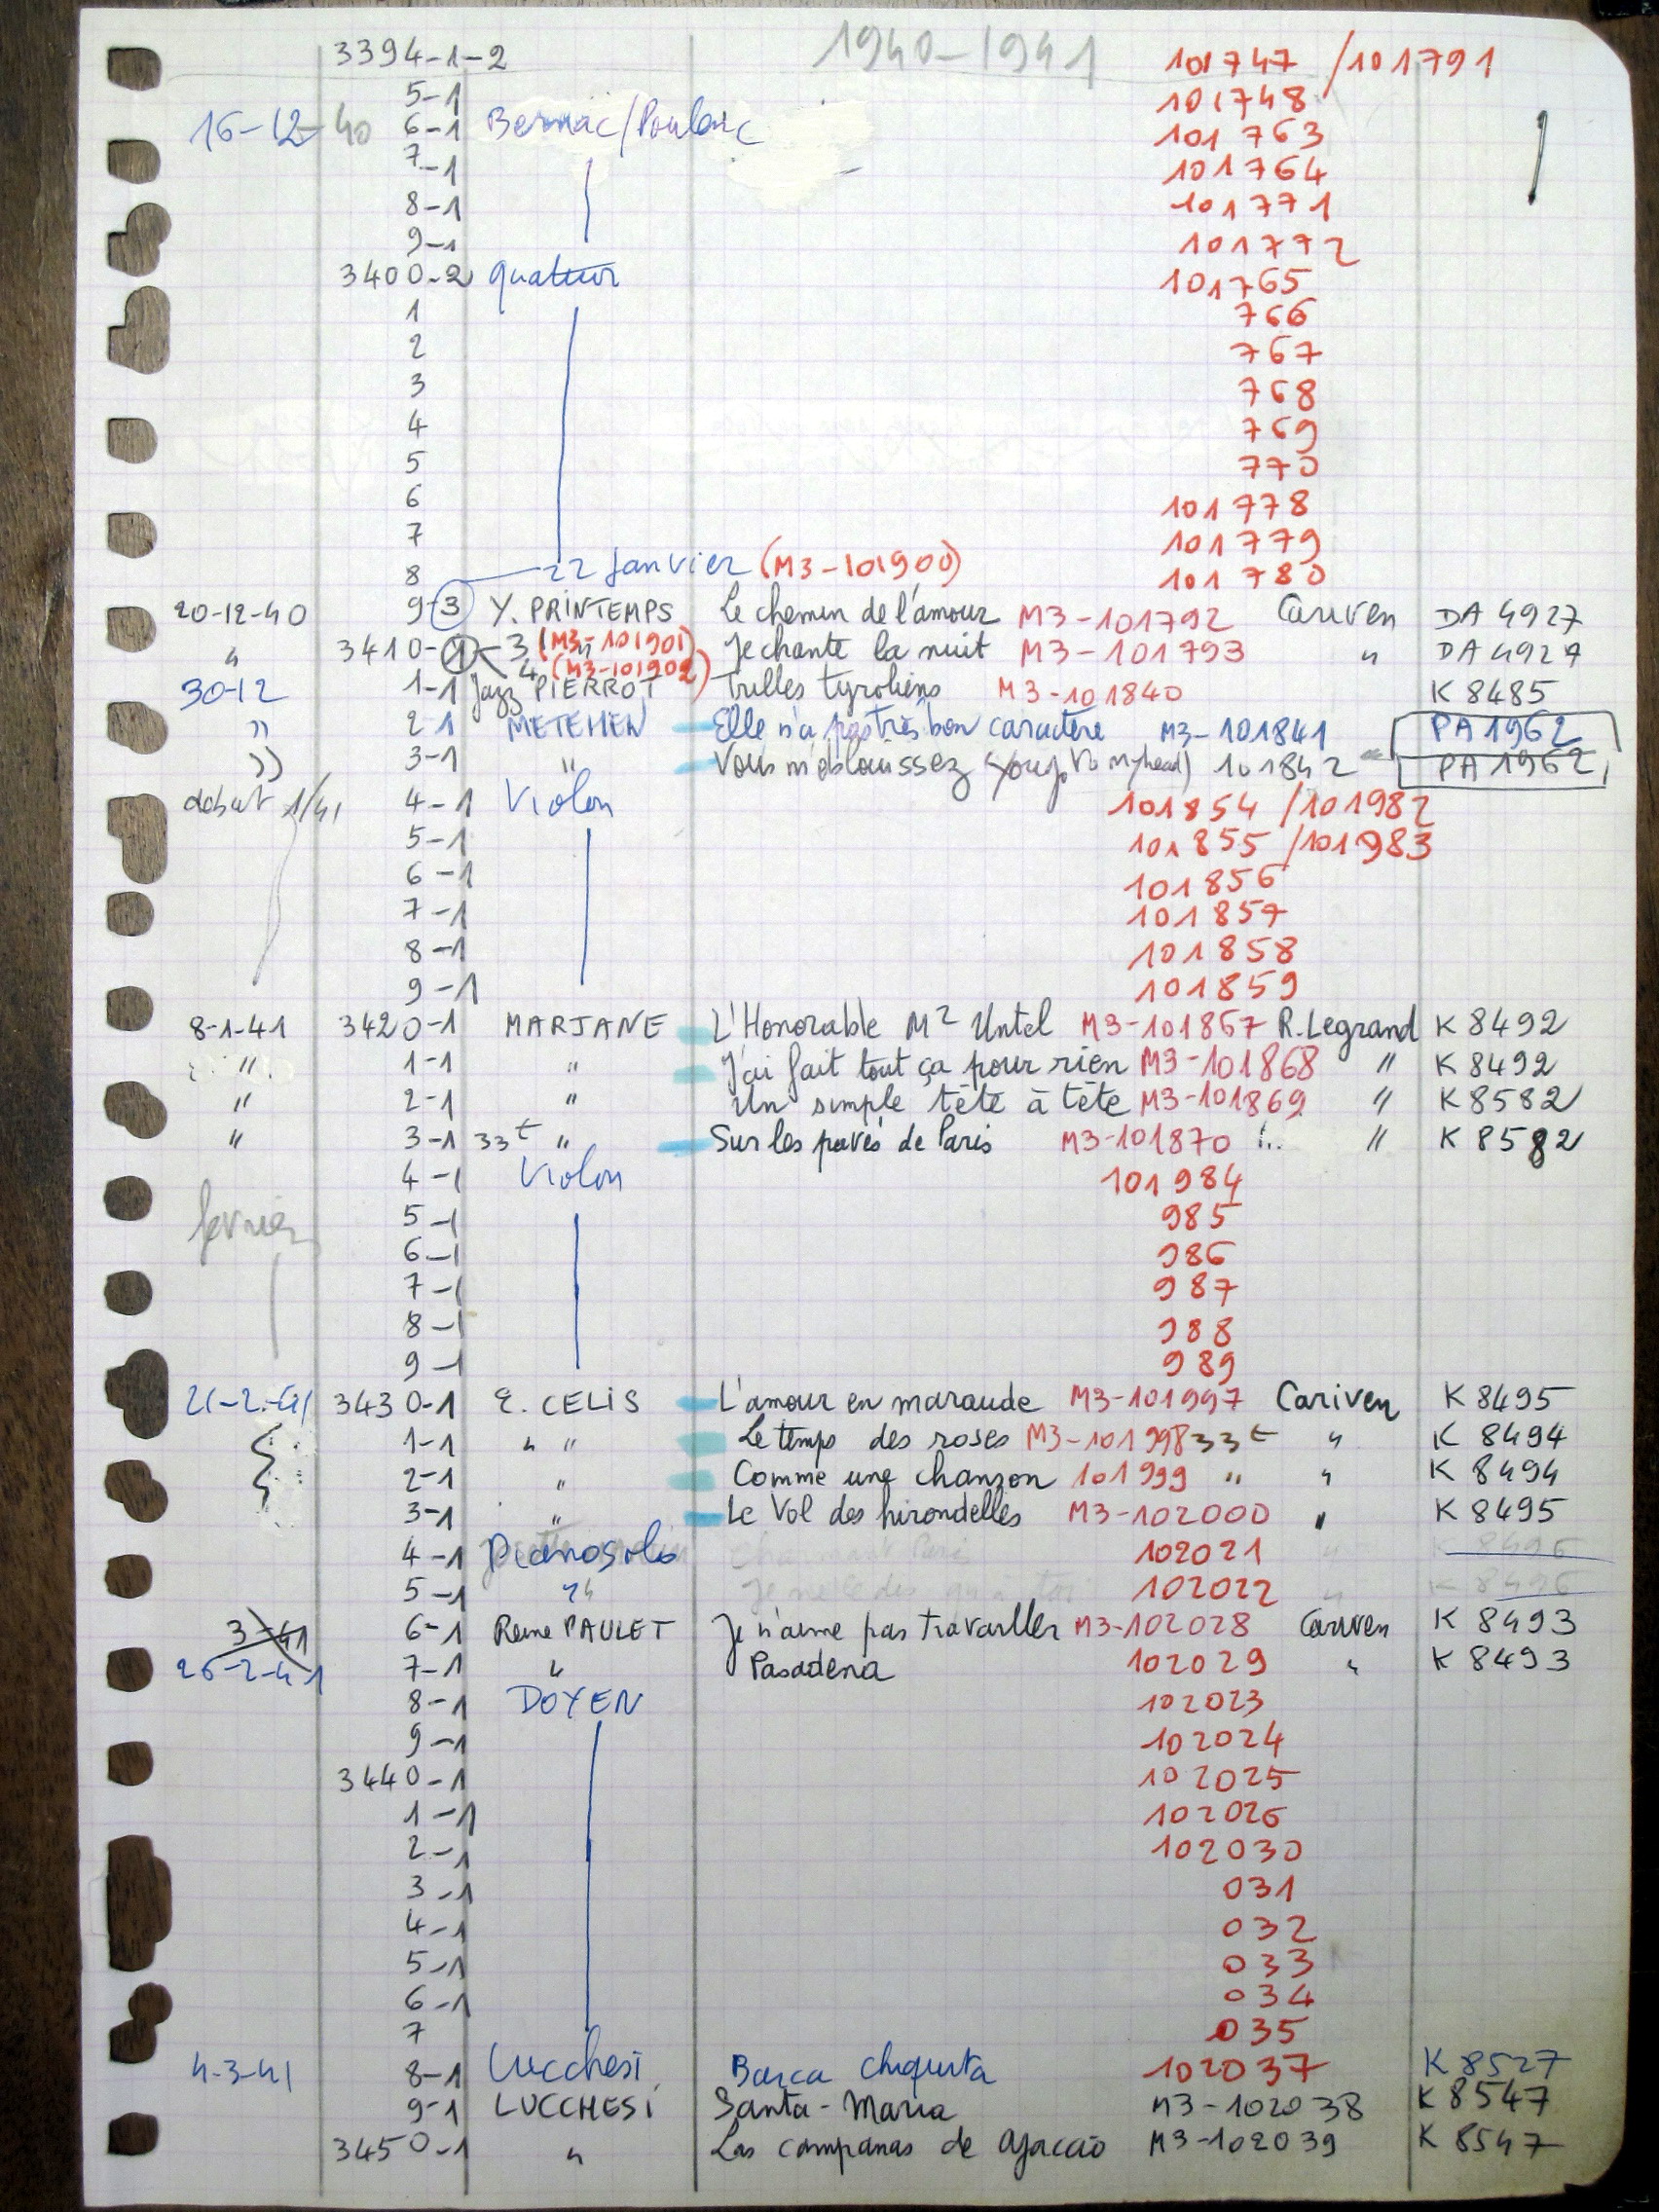 1940-1941
3394-1-2 101747 /101791
5-1 101748
16-12-40 6-1 Bernac/Poulenc 101763
7-1 101764
8-1 101771
9-1 101772
3400-2 quatuor 101765
1 766
2 767
3 768
4 769
5 770
6 101778
7 101779
8 22 Janvier (M3-101900) 101780
20-12-40 9-3 Y. PRINTEMPS Le chemin de l'amour M3-101792 Cariven DA 4927
" 3410-1-3 (M3-101901) Je chante la nuit M3-101793 " DA 4927
4 (M3-101902)
30-12 1-1 Jazz PIERROT Trilles tyroliens M3-101840 K 8485
" 2-1 METEHEN Elle n'a pas très bon caractère M3-101841 PA 1962
" 3-1 " Vous m'éblouissez 101842 PA 1962
début 1/41 4-1 Violon 101854 /101982
5-1 101855 /101983
6-1 101856
7-1 101857
8-1 101858
9-1 101859
8-1-41 3420-1 MARJANE L'Honorable Mr Untel M3-101867 R.Legrand K 8492
" 1-1 " J'ai fait tout ça pour rien M3-101868 " K 8492
" 2-1 " Un simple tête à tête M3-101869 " K 8582
" 3-1 33t " Sur les pavés de Paris M3-101870 " K 8582
4-1 Violon 101984
février 5-1 985
6-1 986
7-1 987
8-1 988
9-1 989
21-2-41 3430-1 E. CELIS L'amour en maraude M3-101997 Cariven K 8495
1-1 " " Le temps des roses M3-101998 33t " K 8494
2-1 " Comme une chanson 101999 " " K 8494
3-1 " Le Vol des hirondelles M3-102000 " K 8495
4-1 Piano solo 102021 " K 8496
5-1 " 102022 " K 8496
3-41 6-1 Reine PAULET Je n'aime pas travailler M3-102028 Cariven K 8493
26-2-41 7-1 " Pasadena 102029 " K 8493
8-1 DOYEN 102023
9-1 102024
3440-1 102025
1-1 102026
2-1 102030
3-1 031
4-1 032
5-1 033
6-1 034
7 035
4-3-41 8-1 Lucchesi Barca chiquita 102037 K 8527
9-1 LUCCHESI Santa-Maria M3-102038 K 8547
3450-1 " Las campanas de ajaccio M3-102039 K 8547